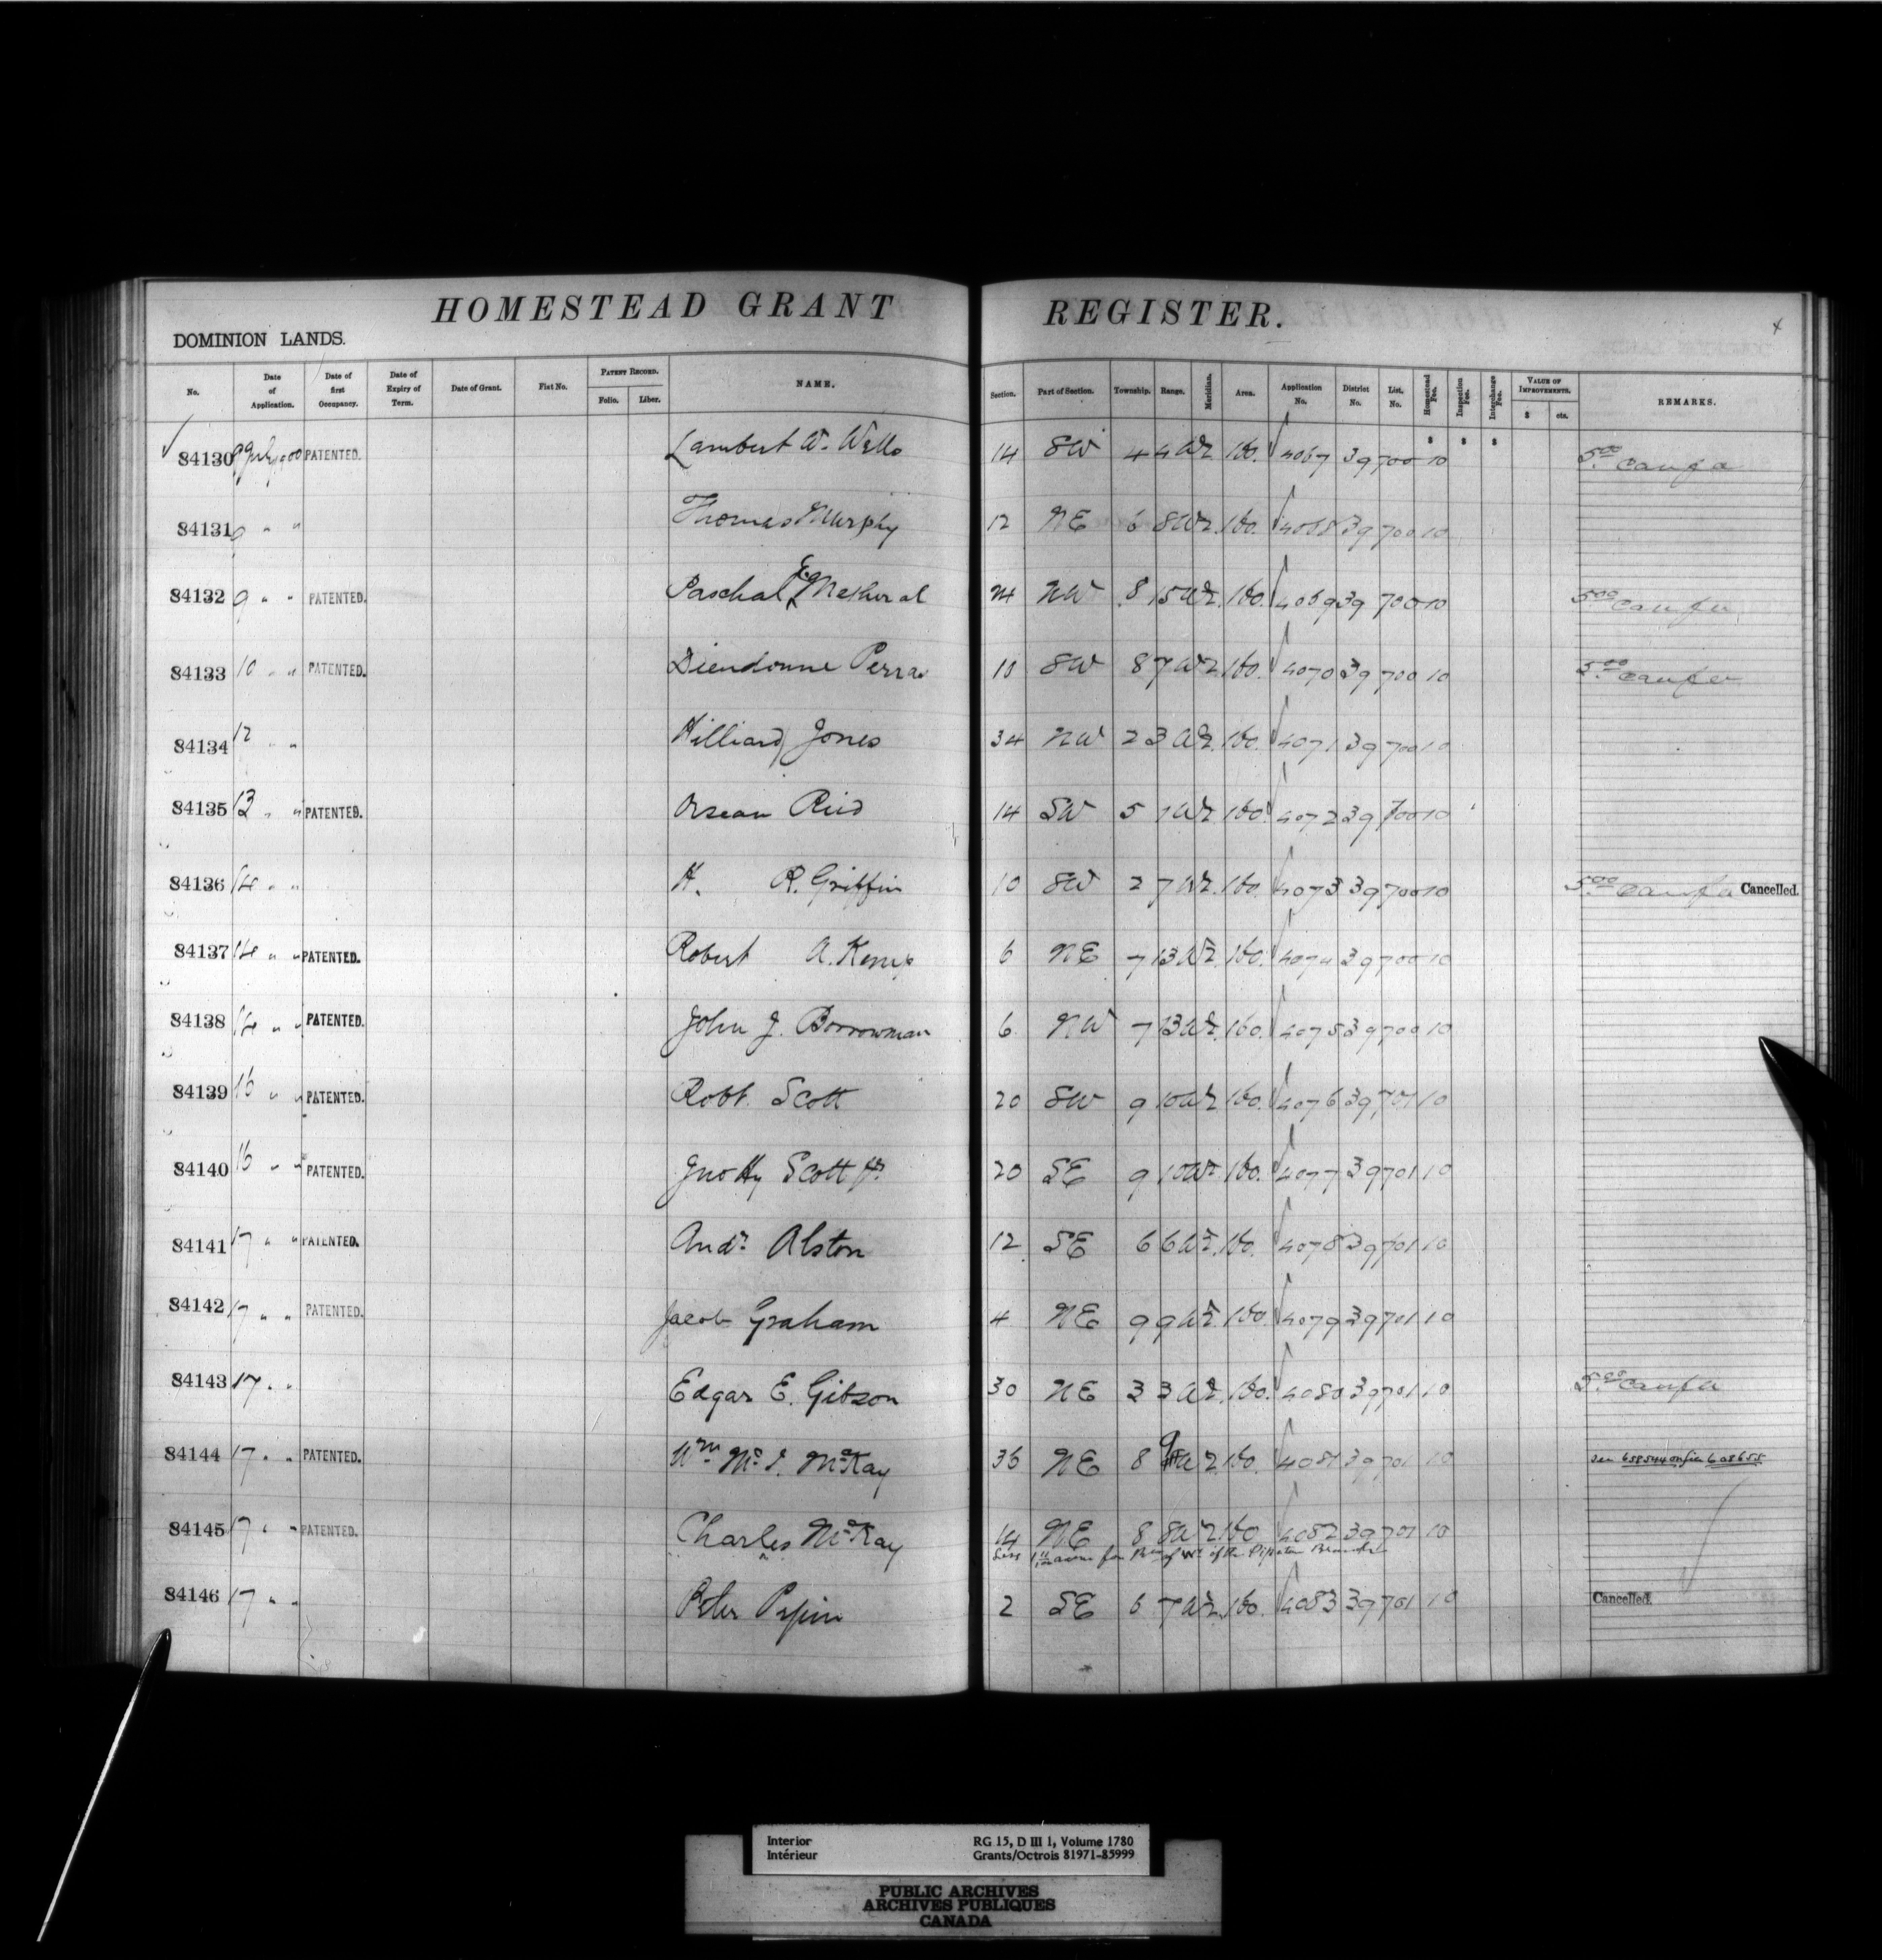 HOMESTEAD GRANT REGISTER.
DOMINION LANDS.
No. Date of Application. Date of first Occupancy. Date of Expiry of Term. Date of Grant. Fist No. PATENT RECORD. Folio. Liber. NAME. Section. Part of Section. Township. Range. Meridian. Area. Application No. District No. List. No. Homestead Fee. Inspection Fee. Interchange Fee. VALUE OF IMPROVEMENTS. $ cts. REMARKS.
84130 9 July 900 PATENTED. Lambert W. Wells 14 SW 4 4 W2 160. 4067 39 700 10 5.00
84131 9 " " Thomas Murphy 12 NE 6 8 W2 160. 4068 39 700 10
84132 9 " " PATENTED. Paschal 24 NW 8 15 W2 160. 4069 39 700 10 5.00
84133 10 " " PATENTED. 10 SW 8 7 W2 160. 4070 39 700 10 5.00
84134 12 " " Hilliard Jones 34 NW 2 3 W2 160. 4071 39 700 10
84135 13 " " PATENTED. Reid 14 SW 5 1 W2 160. 4072 39 700 10
84136 14 " " H. R. Griffin 10 SW 2 7 W2 160. 4073 39 700 10 5.00 Cancelled.
84137 14 " " PATENTED. Robert A. Kemp 6 NE 7 13 W2 160. 4074 39 700 10
84138 14 " " PATENTED. John J. Borrowman 6 NW 7 13 W2 160. 4075 39 700 10
84139 16 " " PATENTED. Robt. Scott 20 SW 9 10 W2 160. 4076 39 701 10
84140 16 " " PATENTED. Jno Hy Scott Jr. 20 SE 9 10 W2 160. 4077 39 701 10
84141 17 " " PATENTED. Andr. Alston 12 SE 6 6 W2 160. 4078 39 701 10
84142 17 " " PATENTED. Jacob Graham 4 NE 9 9 W2 160. 4079 39 701 10
84143 17 " " Edgar E. Gibson 30 NE 3 3 W2 160. 4080 39 701 10 5.00
84144 17 " " PATENTED. Wm Mc J. McKay 36 NE 8 9 W2 160. 4081 39 701 10 See 658544 on file 608655
84145 17 " " PATENTED. Charles McKay 14 NE 8 8 W2 160 4082 39 701 10
Less acres for of the Pipestone Branch
84146 17 " " Peter Pepin 2 SE 6 7 W2 160. 4083 39 701 10 Cancelled.
Interior RG 15, D III 1, Volume 1780
Intérieur Grants/Octrois 81971-85999
PUBLIC ARCHIVES
ARCHIVES PUBLIQUES
CANADA